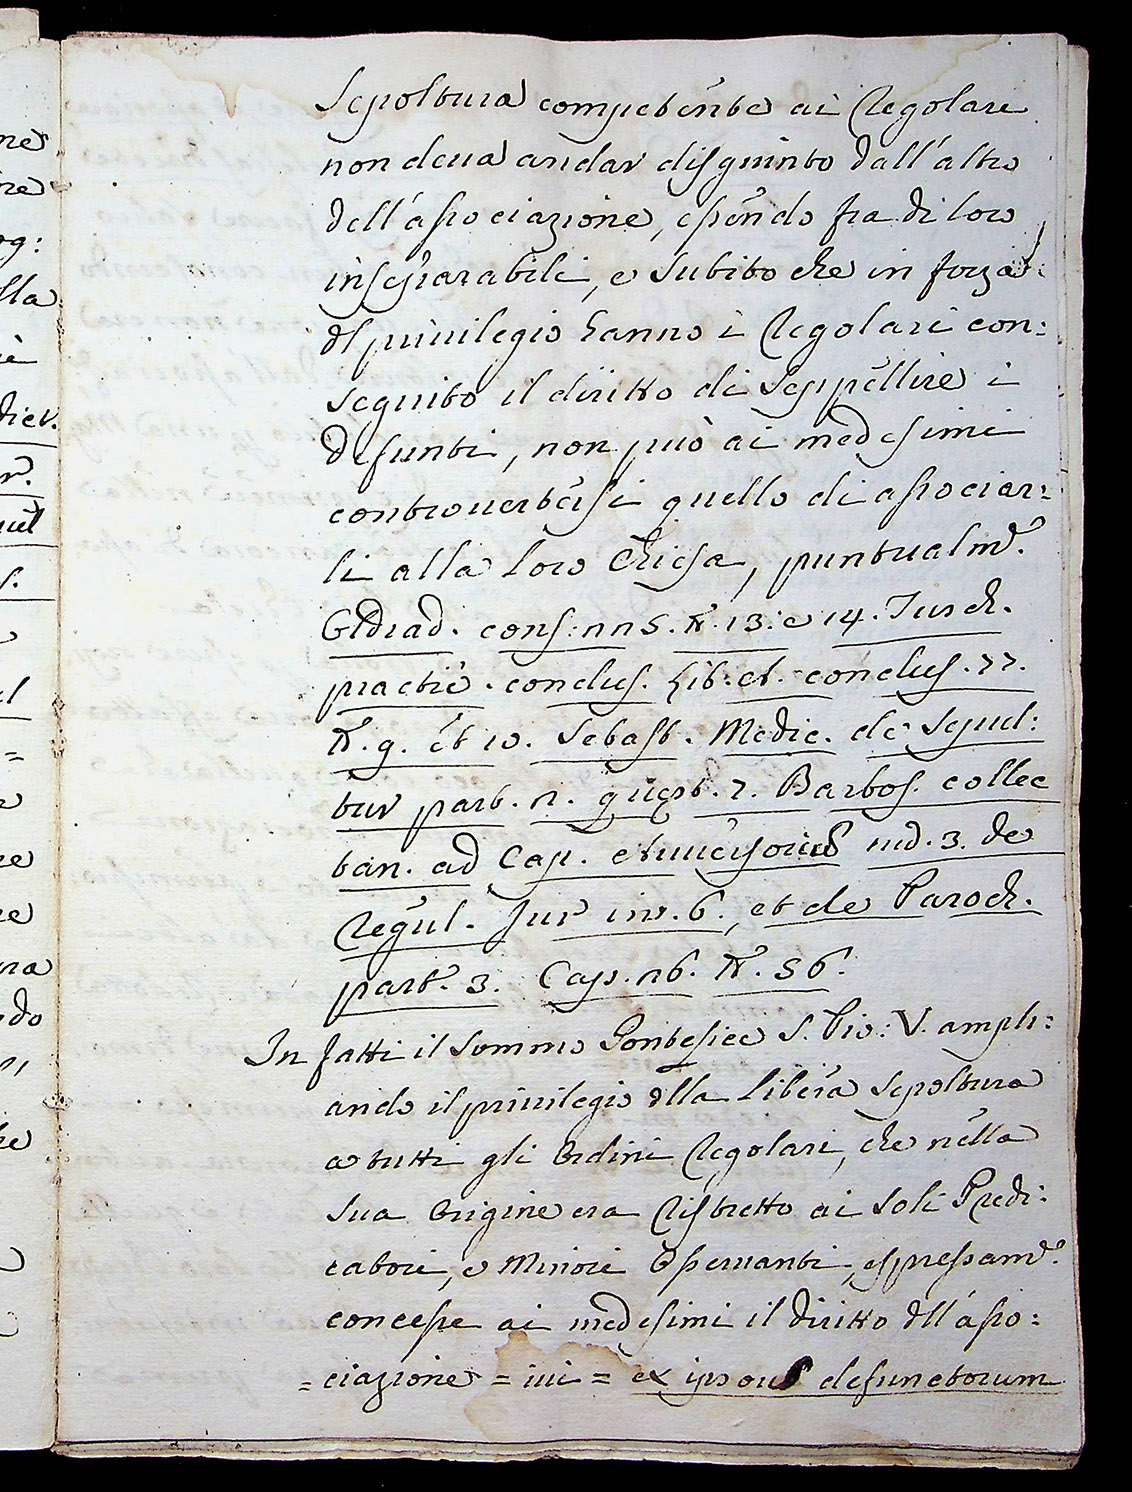 Sepoltura competénte ai Regolare
non deva andar disgiunto dall'altro
dell'associazione, essendo fra di loro
inseparabili, e subito che in forza
dl privilegio hanno i Regolari con:
seguito il diritto di seppellire i
defunti, non può ai medesimi
controvertersi quello di associar:
li alla loro Chiesa, puntualm.e
Oldrad. cons: 115. N. 13: e 14. Tusch.
practic. conclus. lib. conclus. 77.
N. 9. et 10. Sebast. Medic. de Sepul:
tur part. 1. quest. 7. Barbos. collec
tan. ad Cap. 3. de
Regul. Jur in. 6., et de Paroch.
part. 3. Cap. 26. N. 56.
In fatti il Sommo Pontefice S. Pio: V. ampli:
ando il privilegio dlla libera sepoltura
a tutti gli Ordini Regolari, che nella
sua Origine era Ristretto ai soli Predi:
catori, e Minori Osservanti, espressam.e
concesse ai medesimi il diritto dll'asso:
=ciazione = ivi = ex ipsorum defunctorum
ne
re
og:
lla
è
dict.
r.
s.
el
=
re
re
ra
ndo
he